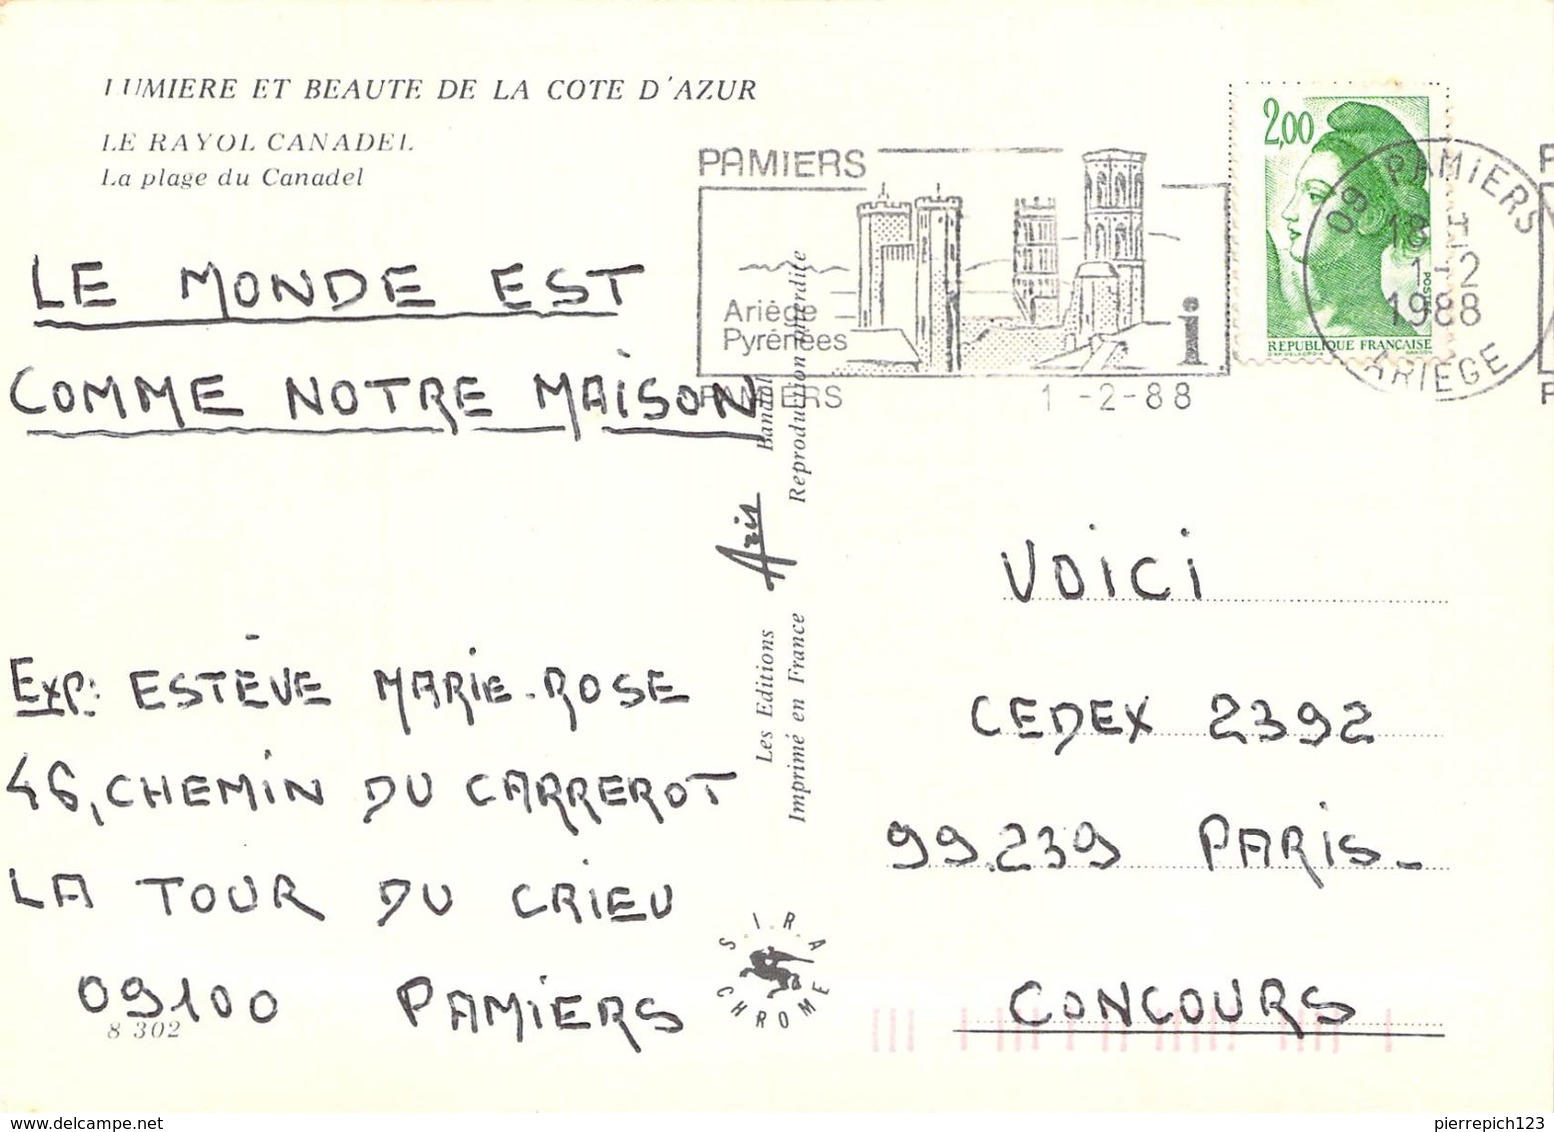 LUMIERE ET BEAUTE DE LA COTE D'AZUR
LE RAYOL CANADEL
La plage du Canadel
LE MONDE EST
COMME NOTRE MAISON
Exp: ESTÈVE MARIE-ROSE
46, CHEMIN DU CARREROT
LA TOUR DU CRIEU
09100 PAMIERS
8 302
Les Editions Aris Bandol
Imprimé en France Reproduction interdite
S.I.R.A
CHROME
PAMIERS
Ariége
Pyrénées
i
PAMIERS 1 -2-88
2,00
REPUBLIQUE FRANÇAISE
POSTES
09 PAMIERS
18 H
1-2
1988
ARIEGE
VOICI
CEDEX 2392
99.239 PARIS-
CONCOURS
pierrepich123